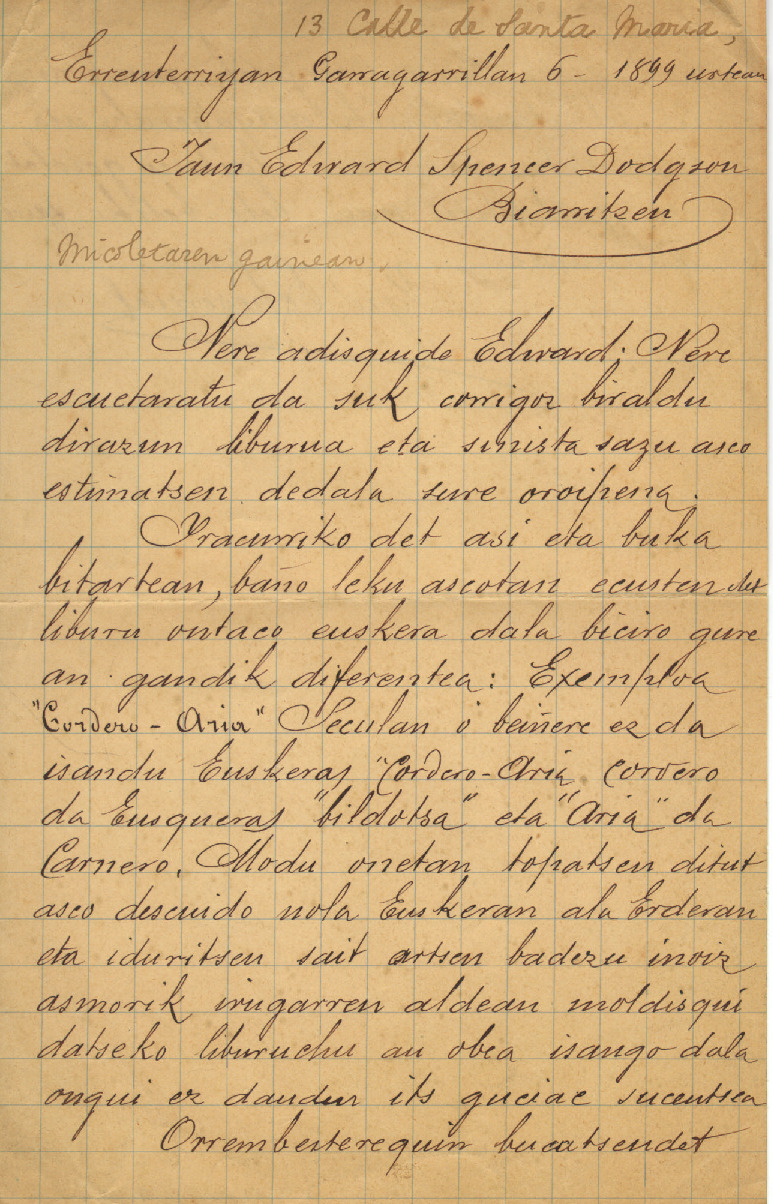 13 Calle de Santa Maria,
Errenteriyan Garagarrillan 6 - 1899 urtean
Jaun Edward Spencer Dodgson
Biarritzen
Micoletaren gainean.
Nere adisquide Edward: Nere
escuetaratu da suk corrigoz biraldu
dirazun liburua eta sinista sazu asco
estimatsen dedala sure oroipena.
Iracurriko det asi eta buka
bitartean, baño leku ascotan ecusten det
liburu ontaco euskera dala biciro gure
an gandik diferentea: Exemploa
"Cordero - Aria" Seculan o beiñere ez da
isandu Euskeras "Cordero-Aria, cordero
da Eusqueras "bildotsa" eta "Aria" da
Carnero. Modu onetan topatsen ditut
asco descuido nola Euskeran ala Erderan
eta iduritsen sait artsen badezu inoiz
asmorik irugarren aldean moldisqui
datseko liburuchu au obea isango dala
ongui ez dauden its guciac sucentsea
Orrembesterequin bucatsendet